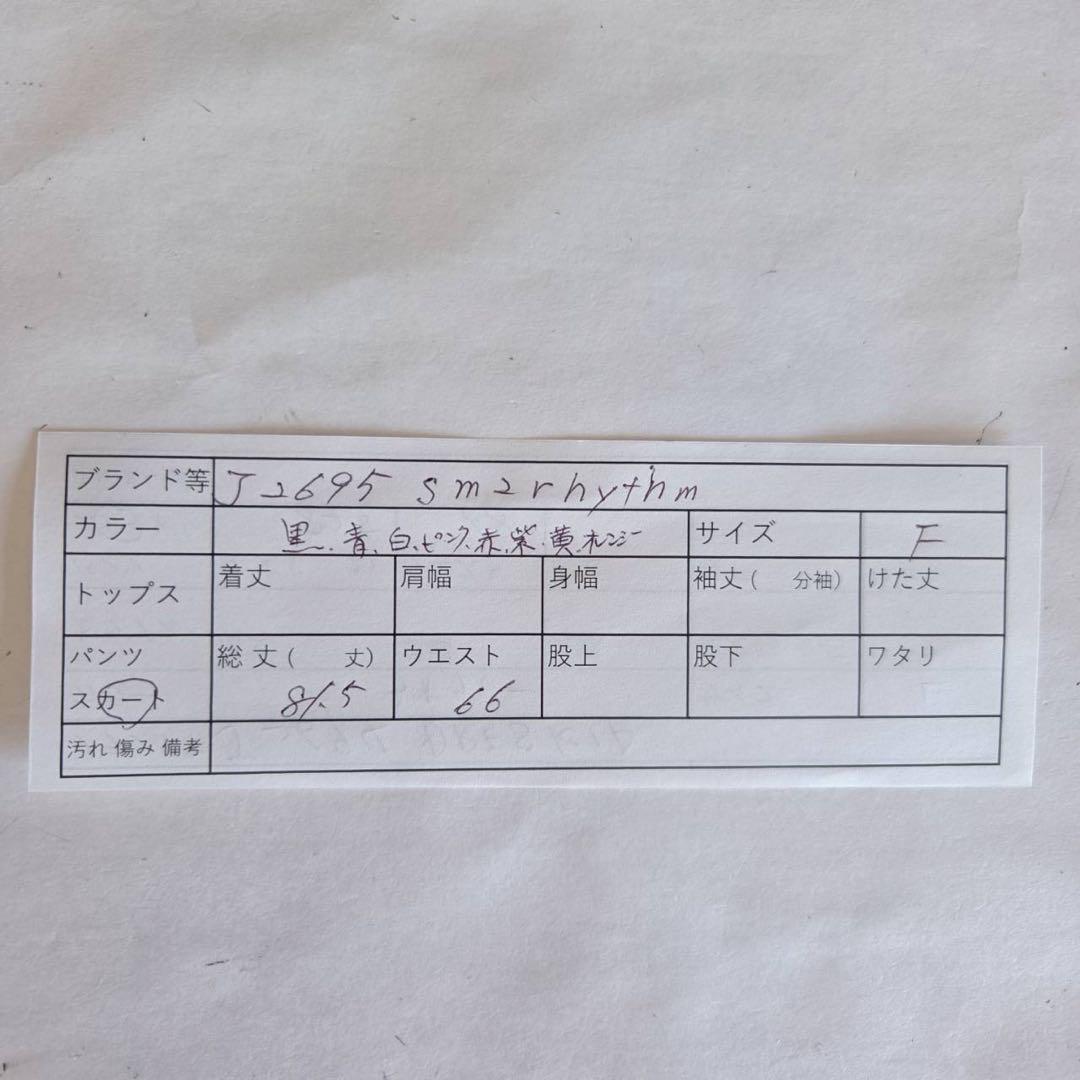 ブランド等 J2695 sm2rhythm
カラー 黒、青、白、ピンク、赤、紫、黄、オレンジー サイズ F
トップス 着丈 肩幅 身幅 袖丈( 分袖) けた丈
パンツ 総丈( 丈) ウエスト 股上 股下 ワタリ
スカート 81.5 66
汚れ 傷み 備考